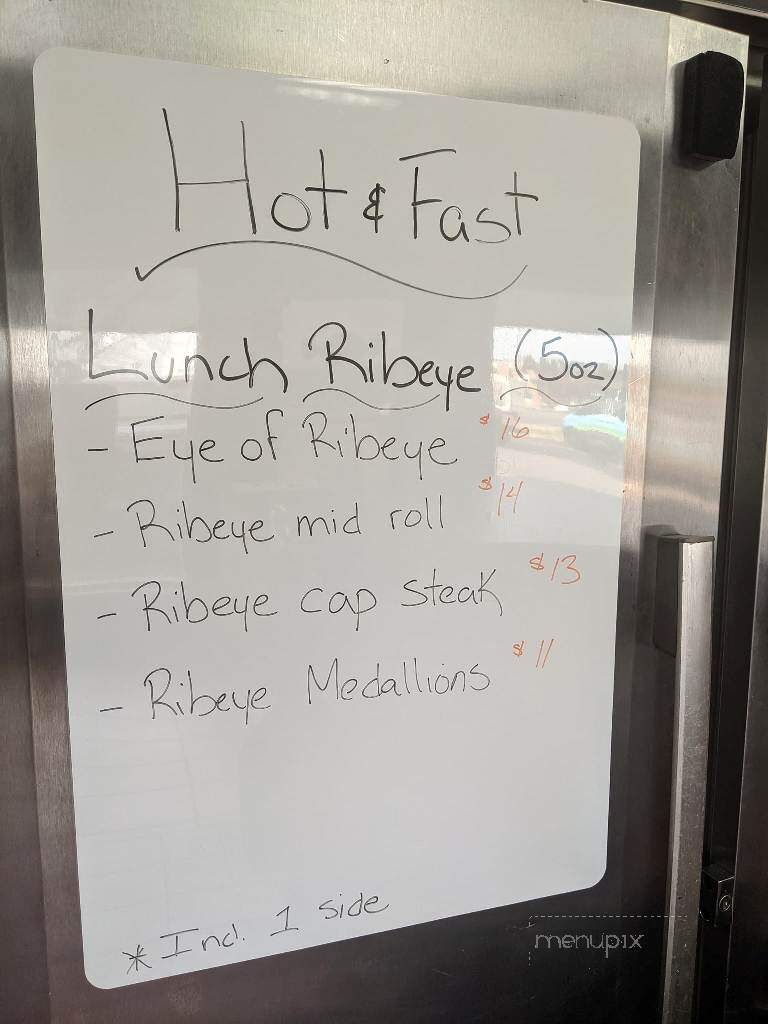 Hot & Fast
Lunch Ribeye (5oz)
- Eye of Ribeye $16
- Ribeye mid roll $14
- Ribeye cap steak $13
- Ribeye Medallions $11
* Incl. 1 side
menupix